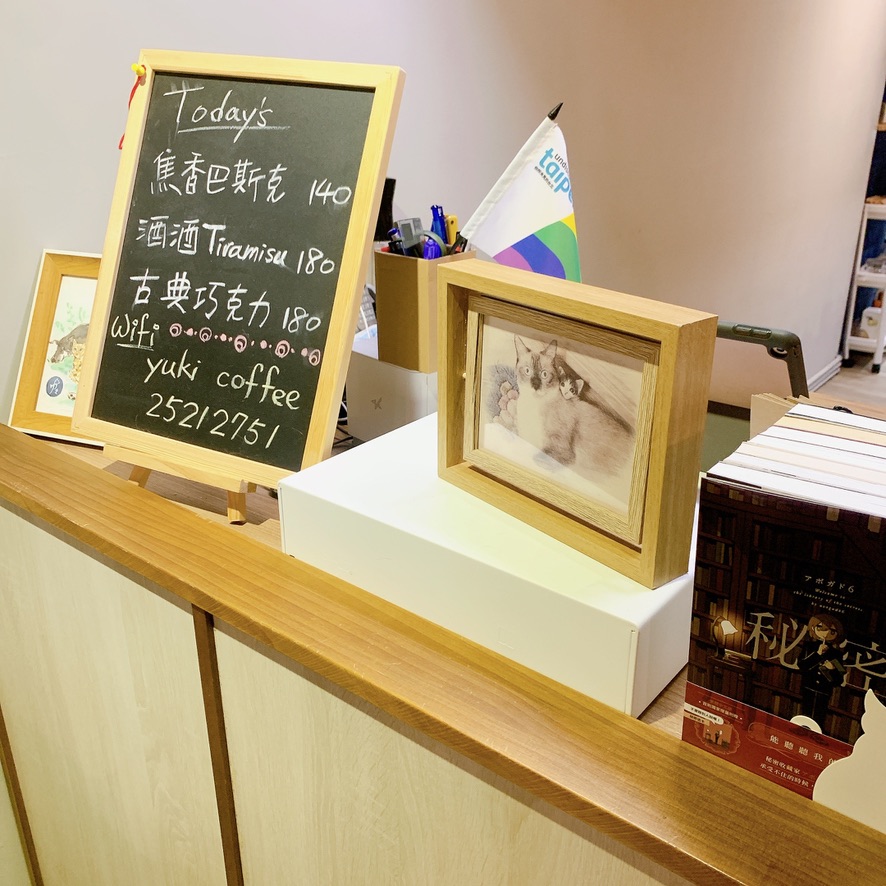 Today's
焦香巴斯克 140
酒酒Tiramisu 180
古典巧克力 180
Wifi
yuki coffee
25212751
taipe
アボガド6
Welcome to
the library of the secrets
by avogado6
秘密
能聽聽我的
秘密收藏家
承受不住的時候